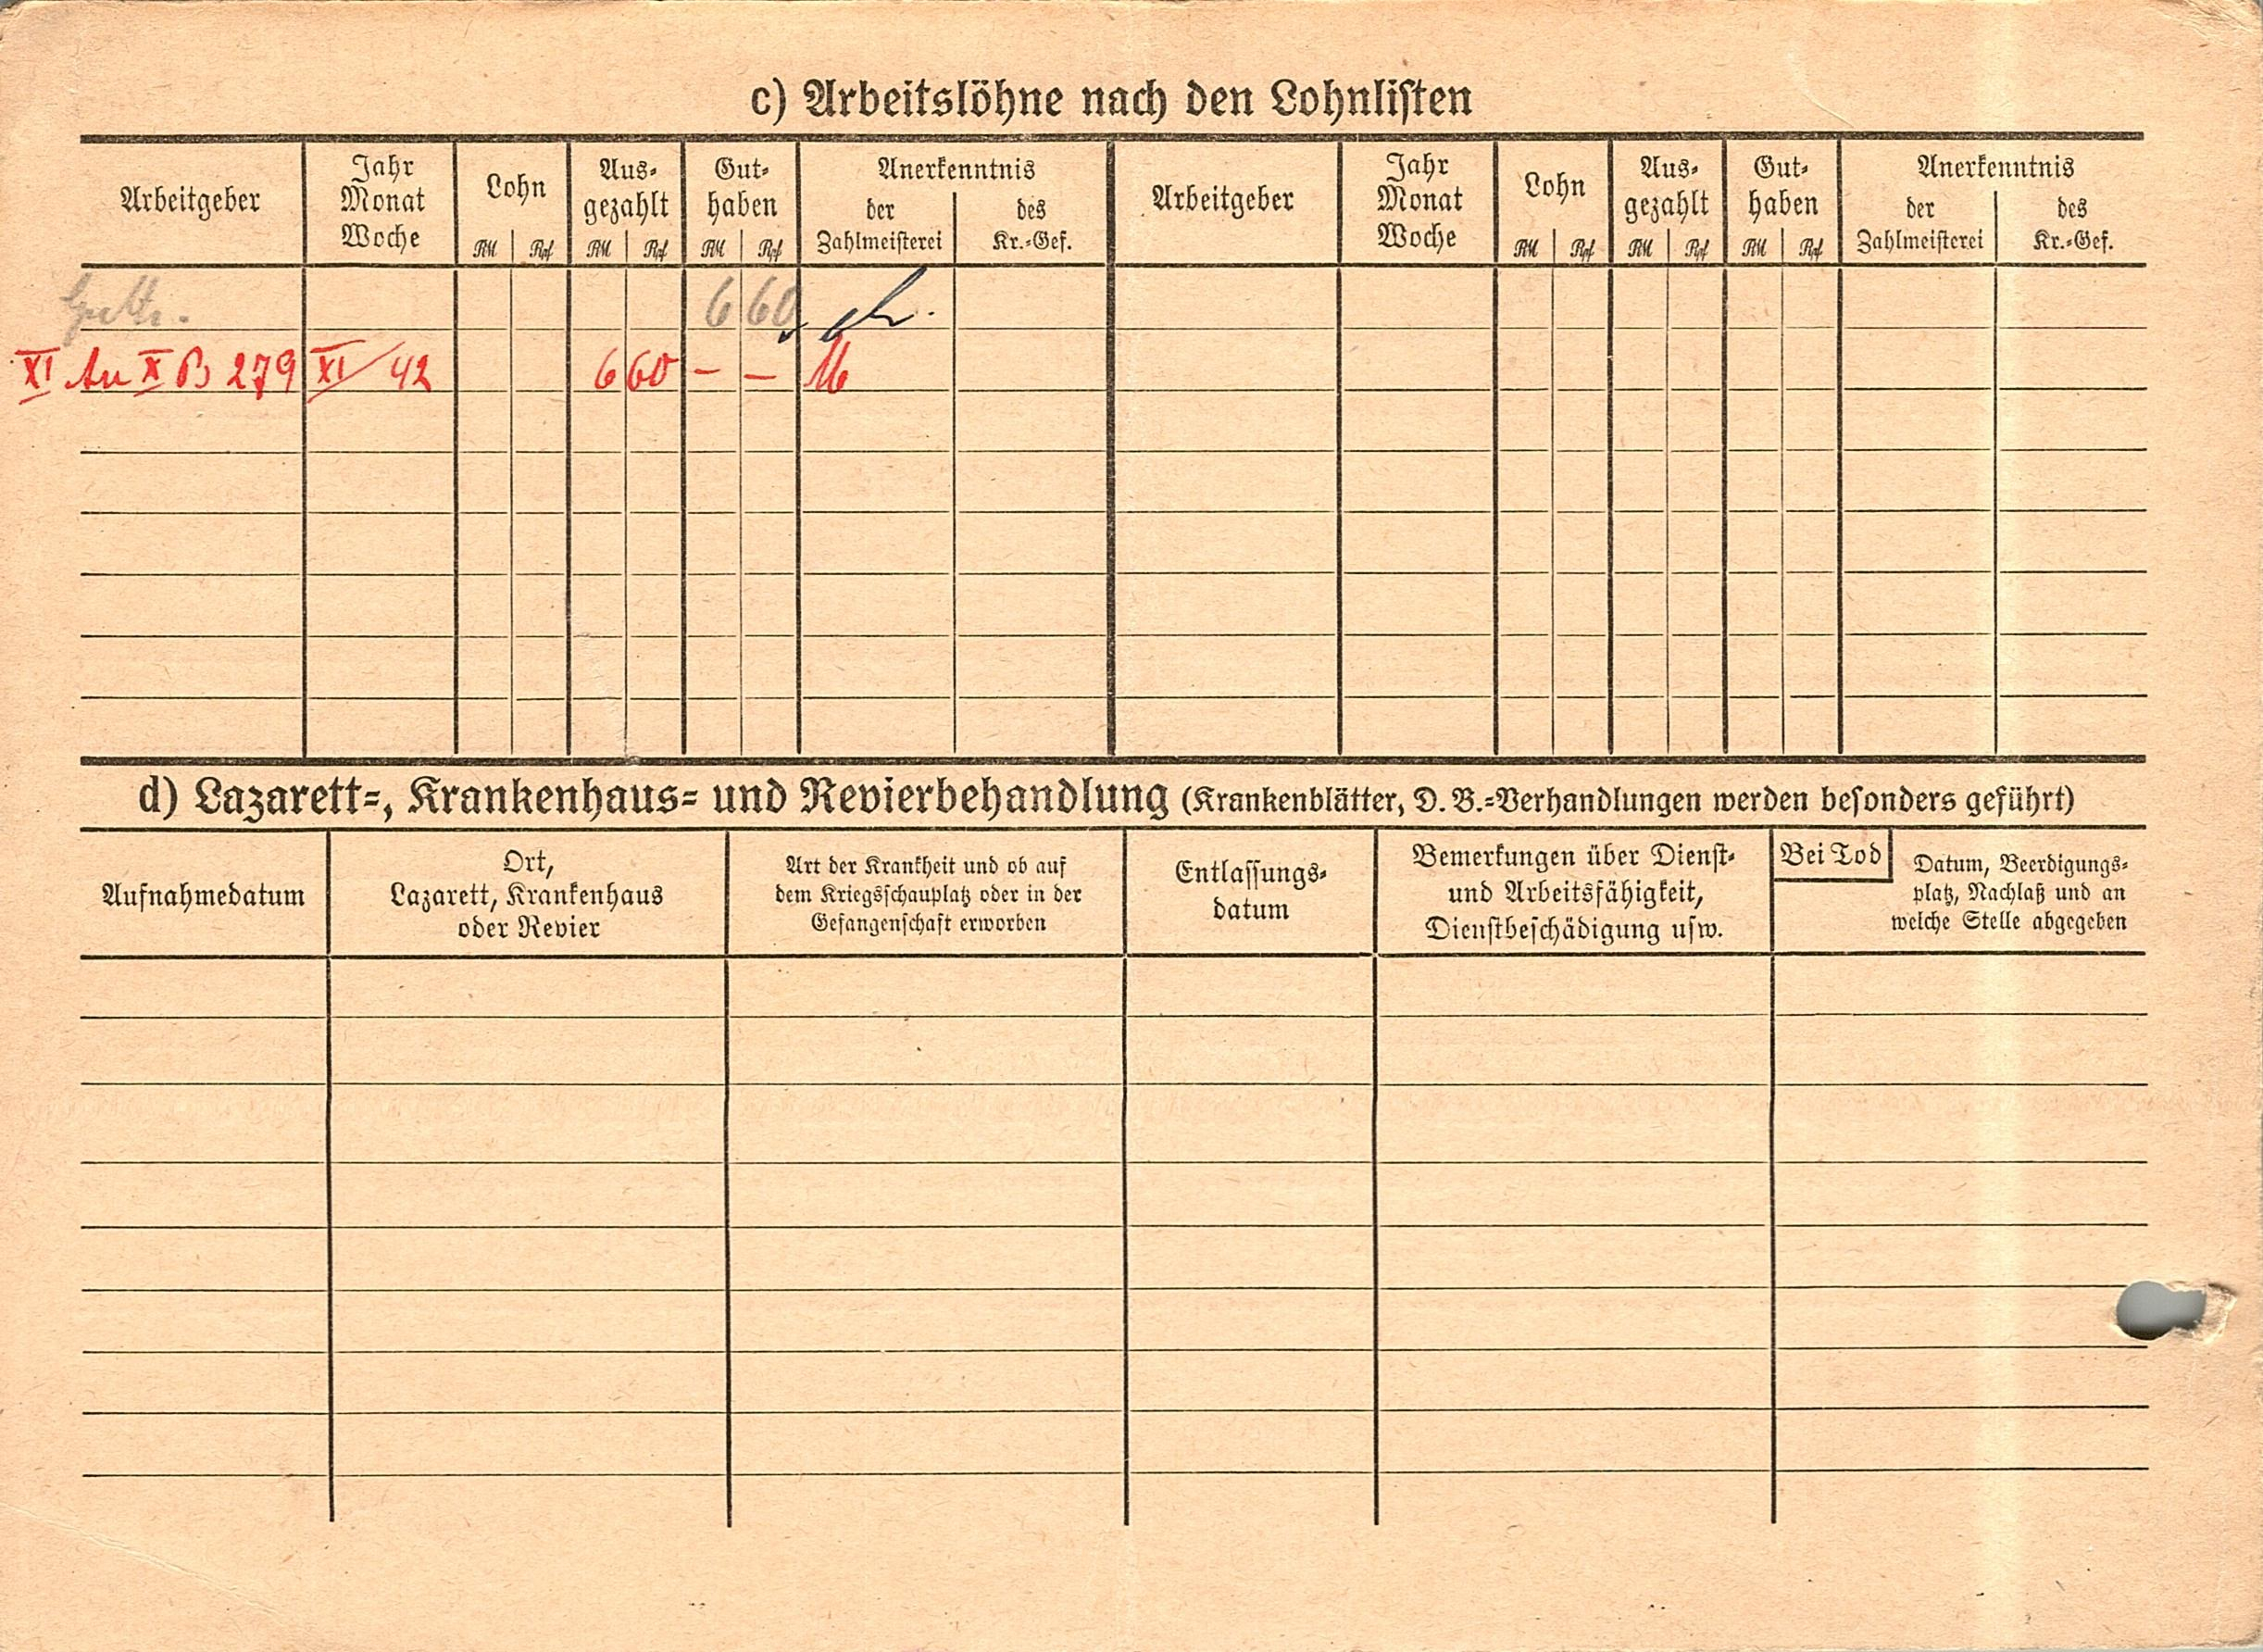 c) Arbeitslöhne nach den Lohnlisten
Arbeitgeber
Jahr
Monat
Woche
Lohn
RM Rpf
Aus-
gezahlt
RM Rpf
Gut-
haben
RM Rpf
Anerkenntnis
der
Zahlmeisterei
des
Kr.-Gef.
Arbeitgeber
Jahr
Monat
Woche
Lohn
RM Rpf
Aus-
gezahlt
RM Rpf
Gut-
haben
RM Rpf
Anerkenntnis
der
Zahlmeisterei
des
Kr.-Gef.
6 60
XI An X B 279 XI/42 6 60 - -
d) Lazarett-, Krankenhaus- und Revierbehandlung (Krankenblätter, D. B.-Verhandlungen werden besonders geführt)
Aufnahmedatum
Ort,
Lazarett, Krankenhaus
oder Revier
Art der Krankheit und ob auf
dem Kriegsschauplatz oder in der
Gefangenschaft erworben
Entlassungs-
datum
Bemerkungen über Dienst-
und Arbeitsfähigkeit,
Dienstbeschädigung usw.
Bei Tod
Datum, Beerdigungs-
platz, Nachlaß und an
welche Stelle abgegeben